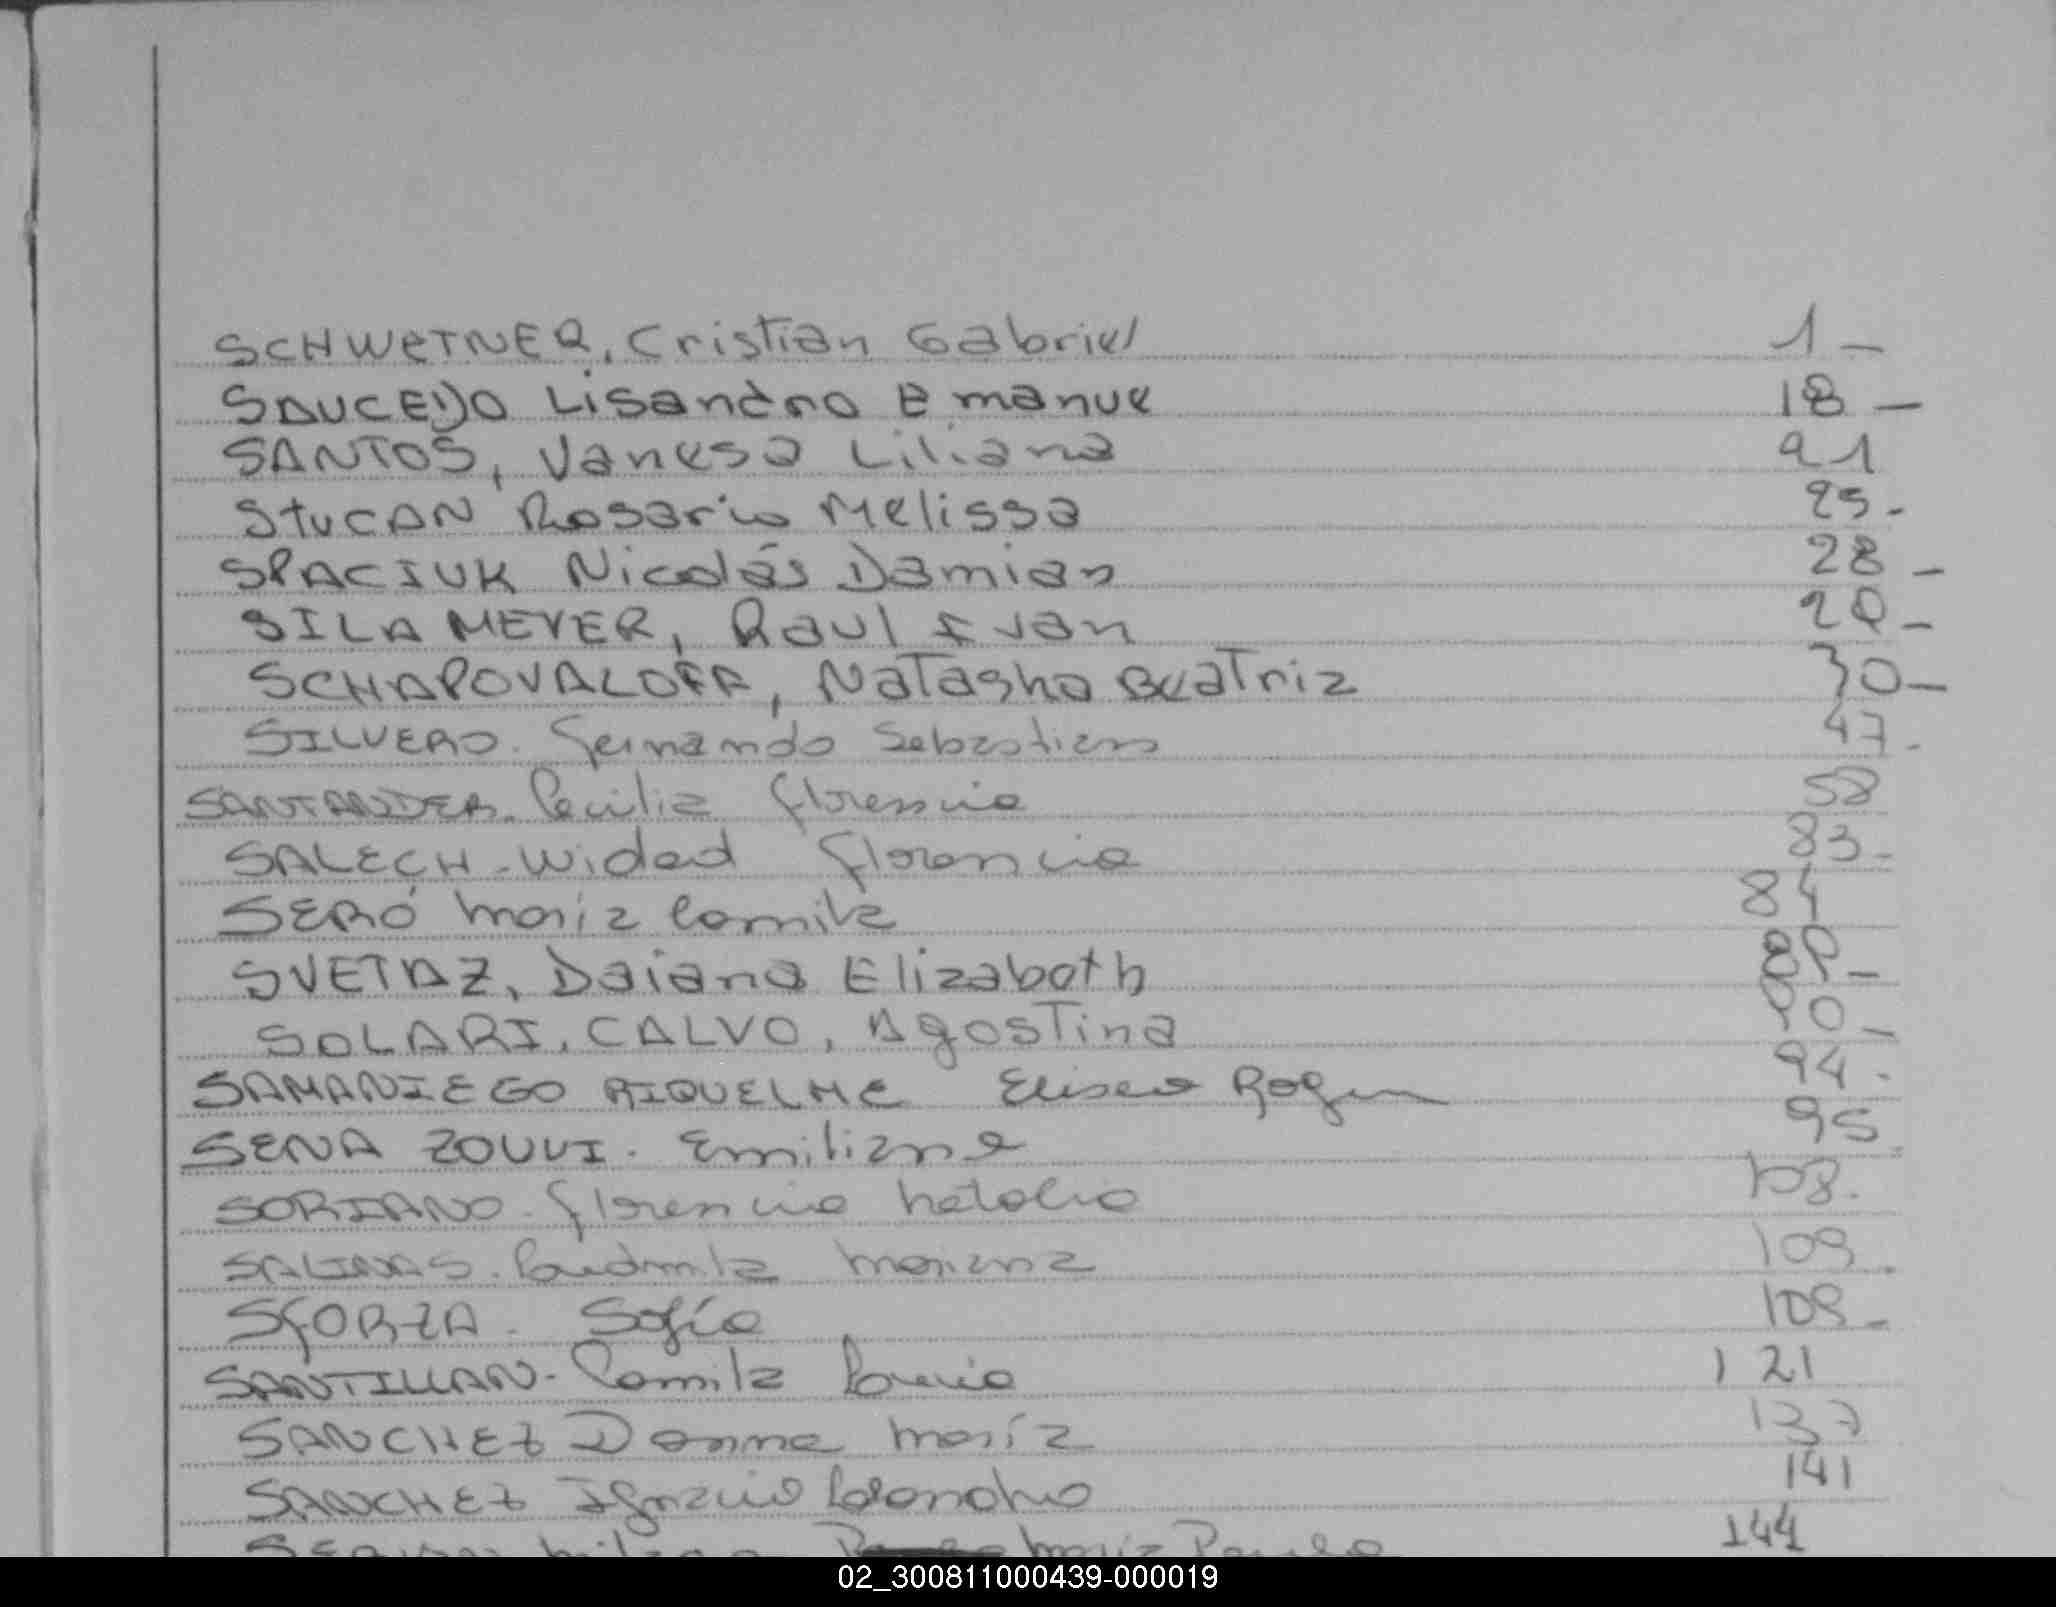 SCHWETNER, Cristian Gabriel 1 -
SAUCEDO Lisandro Emanuel 18 -
SANTOS, Vanesa Liliana 21
STUCAN Rosario Melissa 25 -
SPACIUK Nicolás Damian 28 -
SILAMEYER, Raul Ivan 29 -
SCHAPOVALOFF, Natasha Beatriz 30 -
SILVERO. Fernando Sebastian 47 -
SANTANDER. Cecilia Florencia 58
SALECH - Widad Florencia 83 -
SERÓ María Camila 84
SVETAZ, Daiana Elizabeth 89 -
SOLARI, CALVO, Agostina 90 -
SAMANIEGO RIQUELME Eliseo Roger 94 -
SENA ZOUVI. Emiliano 95
SORIANO - Florencia Natalia 108.
SALINAS. Ludmila Mariana 109
SFORZA - Sofía 109 -
SANTILLAN - Camila Lucia 121
SANCHEZ Donna María 137
SANCHEZ Ignacio Leonardo 141
María Paula 144
02_300811000439-000019